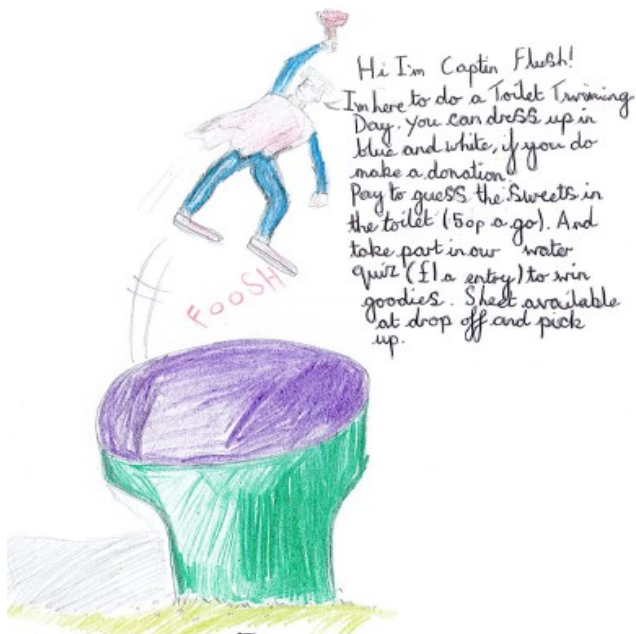 Hi I'm Captin Flush!
I'm here to do a Toilet Twining
Day. You can dress up in
blue and white, if you do
make a donation.
Pay to guess the Sweets in
the toilet (50p a go). And
take part in our water
quiz (£1 a entry) to win
goodies. Sheet available
at drop off and pick
up.
FOOSH